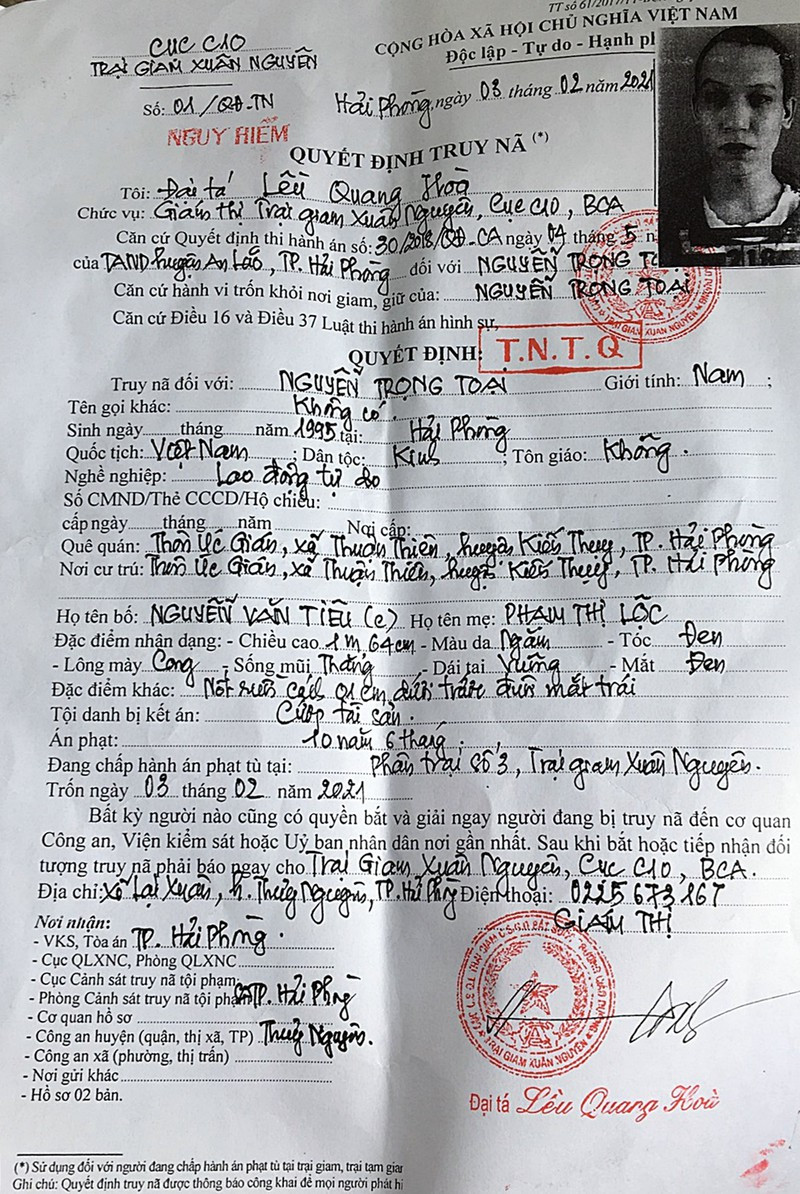 TT số 61/2017/TT-
CỤC C10
TRẠI GIAM XUÂN NGUYÊN
CỘNG HÒA XÃ HỘI CHỦ NGHĨA VIỆT NAM
Độc lập - Tự do - Hạnh ph
Số: 01/QĐ-TN
Hải Phòng, ngày 03 tháng 02 năm 2021
NGUY HIỂM
QUYẾT ĐỊNH TRUY NÃ (*)
Tôi: Đại tá Lều Quang Hoà
Chức vụ: Giám thị Trại giam Xuân Nguyên, Cục C10, BCA
Căn cứ Quyết định thi hành án số: 30/2018/QĐ-CA ngày 04 tháng 5 n
của TAND huyện An Lão, TP. Hải Phòng đối với NGUYỄN TRỌNG TOẠI
Căn cứ hành vi trốn khỏi nơi giam, giữ của: NGUYỄN TRỌNG TOẠI
Căn cứ Điều 16 và Điều 37 Luật thi hành án hình sự,
QUYẾT ĐỊNH: T.N.T.Q
Truy nã đối với: NGUYỄN TRỌNG TOẠI Giới tính: Nam ;
Tên gọi khác: Không có.
Sinh ngày tháng năm 1995 tại: Hải Phòng
Quốc tịch: Việt Nam ; Dân tộc: Kinh ; Tôn giáo: Không.
Nghề nghiệp: Lao động tự do
Số CMND/Thẻ CCCD/Hộ chiếu:
cấp ngày tháng năm Nơi cấp:
Quê quán: Thôn Úc Gián, xã Thuận Thiên, huyện Kiến Thuỵ, TP. Hải Phòng
Nơi cư trú: Thôn Úc Gián, xã Thuận Thiên, huyện Kiến Thuỵ, TP. Hải Phòng
Họ tên bố: NGUYỄN VĂN TIÊU (c) Họ tên mẹ: PHẠM THỊ LỘC
Đặc điểm nhận dạng: - Chiều cao 1m 64cm - Màu da Ngăm - Tóc Đen
- Lông mày Cong - Sống mũi Thẳng - Dái tai Vuông - Mắt Đen
Đặc điểm khác: Nốt ruồi cách 01cm dưới trước đuôi mắt trái
Tội danh bị kết án: Cướp tài sản.
Án phạt: 10 năm 6 tháng.
Đang chấp hành án phạt tù tại: Phân trại số 3, Trại giam Xuân Nguyên.
Trốn ngày 03 tháng 02 năm 2021
Bất kỳ người nào cũng có quyền bắt và giải ngay người đang bị truy nã đến cơ quan
Công an, Viện kiểm sát hoặc Uỷ ban nhân dân nơi gần nhất. Sau khi bắt hoặc tiếp nhận đối
tượng truy nã phải báo ngay cho Trại Giam Xuân Nguyên, Cục C10, BCA.
Địa chỉ: Xã Lại Xuân, H. Thuỷ Nguyên, TP. Hải Phòng Điện thoại: 0225673167
Nơi nhận:
GIÁM THỊ
- VKS, Tòa án TP. Hải Phòng.
- Cục QLXNC, Phòng QLXNC
- Cục Cảnh sát truy nã tội phạm
- Phòng Cảnh sát truy nã tội phạm CATP. Hải Phòng
- Cơ quan hồ sơ
- Công an huyện (quận, thị xã, TP) Thuỷ Nguyên.
- Công an xã (phường, thị trấn)
- Nơi gửi khác
- Hồ sơ 02 bản.
Đại tá Lều Quang Hoà
(*) Sử dụng đối với người đang chấp hành án phạt tù tại trại giam, trại tạm giam
Ghi chú: Quyết định truy nã được thông báo công khai để mọi người phát hi